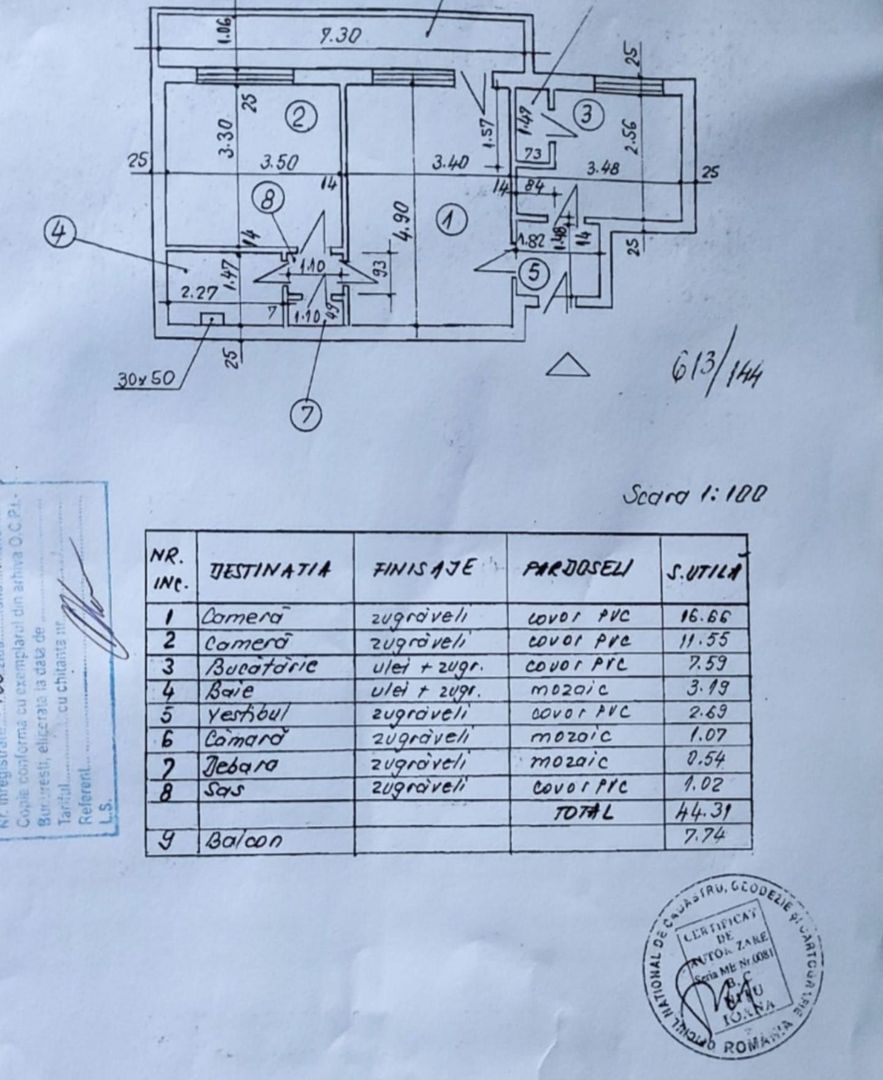 1.06
7.30
25
25
2
3.30
3.50
25
14
14
8
4
1.47
2.27
7
1.10
1.10
49
93
25
30x50
7
3.40
4.90
1
1.57
14
1.47
73
84
3
2.56
3.48
25
25
1.82
1.48
14
5
613/144
Scara 1:100
NR. INC. DESTINATIA FINISAJE PARDOSELI S.UTILĂ
1 Cameră zugrăveli covor PVC 16.66
2 Cameră zugrăveli covor PVC 11.55
3 Bucătărie ulei + zugr. covor PVC 7.59
4 Baie ulei + zugr. mozaic 3.19
5 Vestibul zugrăveli covor PVC 2.69
6 Cămară zugrăveli mozaic 1.07
7 Debara zugrăveli mozaic 0.54
8 Sas zugrăveli covor PVC 1.02
TOTAL 44.31
9 Balcon 7.74
Nr. înregistrare
Copie conformă cu exemplarul din arhiva O.C.P.I.-
Bucuresti, eliberata la data de
Tariful cu chitanta nr.
Referent
L.S.
OFICIUL NAȚIONAL DE CADASTRU, GEODEZIE ȘI CARTOGRAFIE
ROMANIA
CERTIFICAT
DE
AUTORIZARE
Seria MB Nr.0081
IOANA